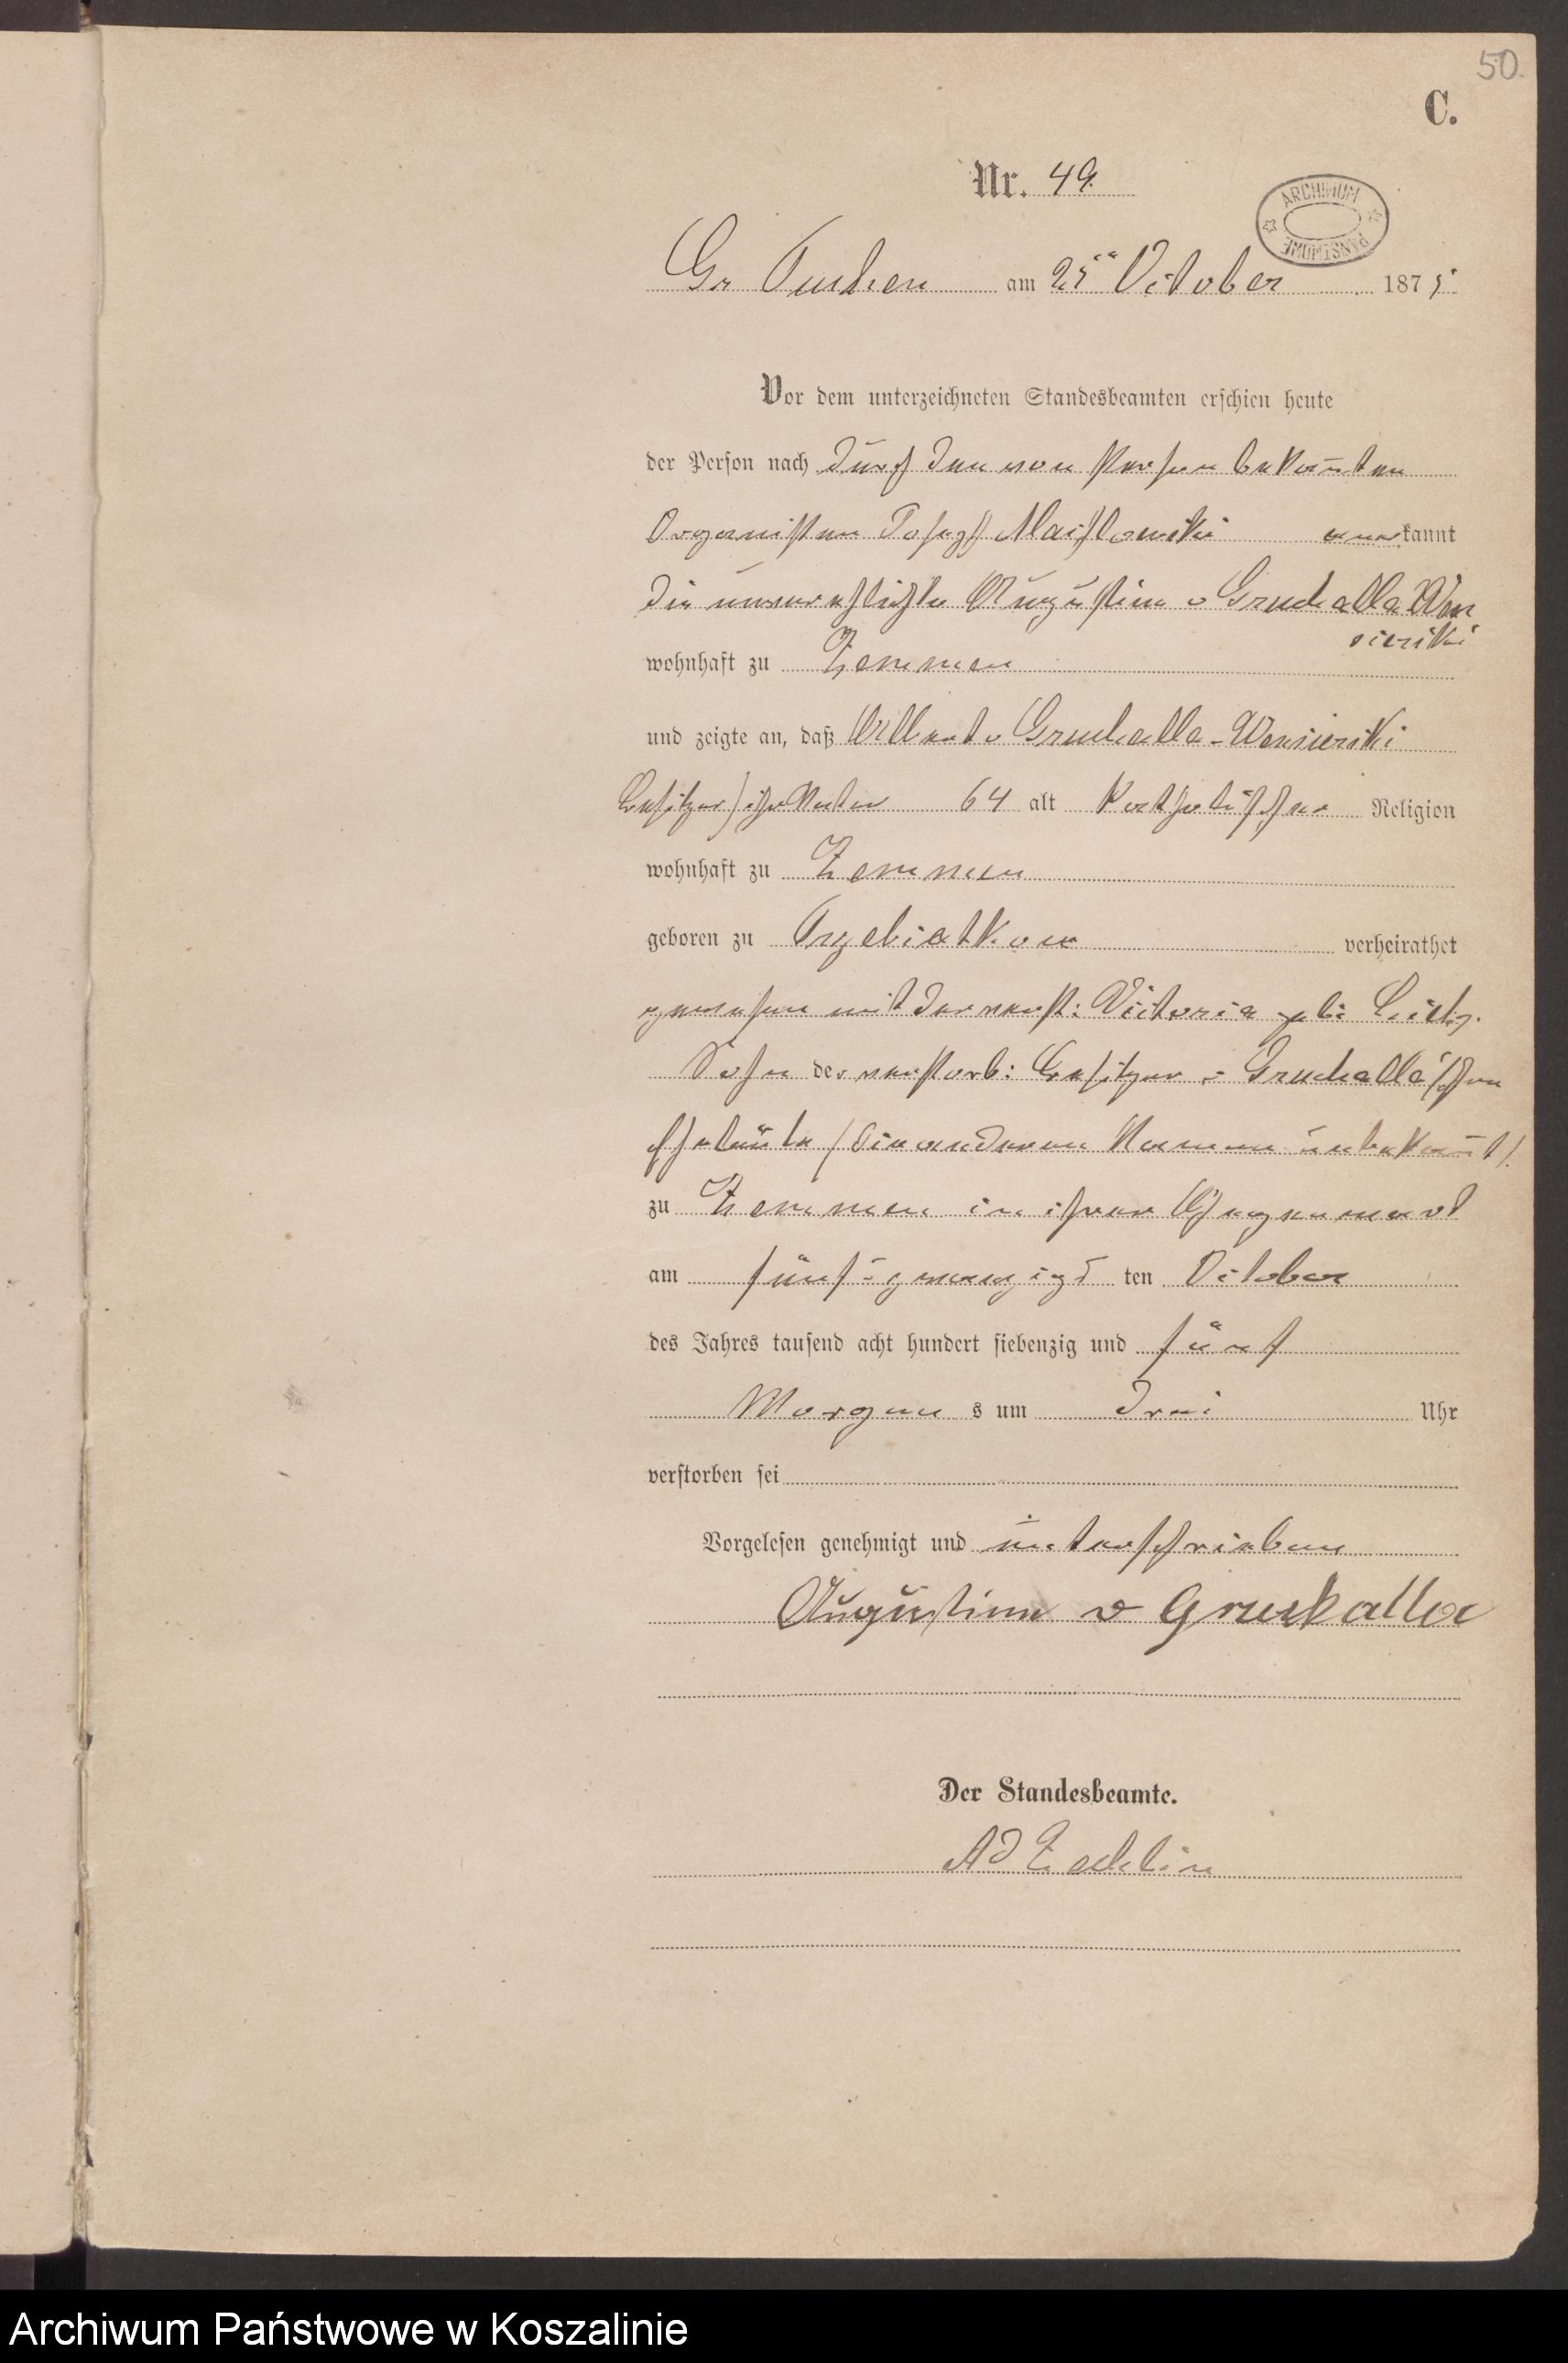 50.
C.
Nr. 49.
ARCHIWUM PAŃSTWOWE
Gr Tuchen am 25ten October 1875
Vor dem unterzeichneten Standesbeamten erschien heute
der Person nach durch den von Person bekañten
Organisten Joseph anerkannt
die unverehlichte Augustine v Gruchalla Wen
sierski
wohnhaft zu Zemmen
und zeigte an, daß Albert v Gruchalla-Wensierski
Besitzer / ihr Vater 64 alt katholischer Religion
wohnhaft zu Zemmen
geboren zu Trzebiatkow verheirathet
gewesen mit der verst: Victoria geb:
Sohn der verstorb: Besitzer v Gruchalla'schen
Eheleute / die anderen Namen unbekañt /.
zu Zemmen in ihrer Gegenwart
am fünf u zwanzigs ten October
des Jahres tausend acht hundert siebenzig und fünf
Morgen s um drei Uhr
verstorben sei
Vorgelesen genehmigt und unterschrieben
Augustine v Gruchalla
Der Standesbeamte.
Ad Zechlin
Archiwum Państwowe w Koszalinie